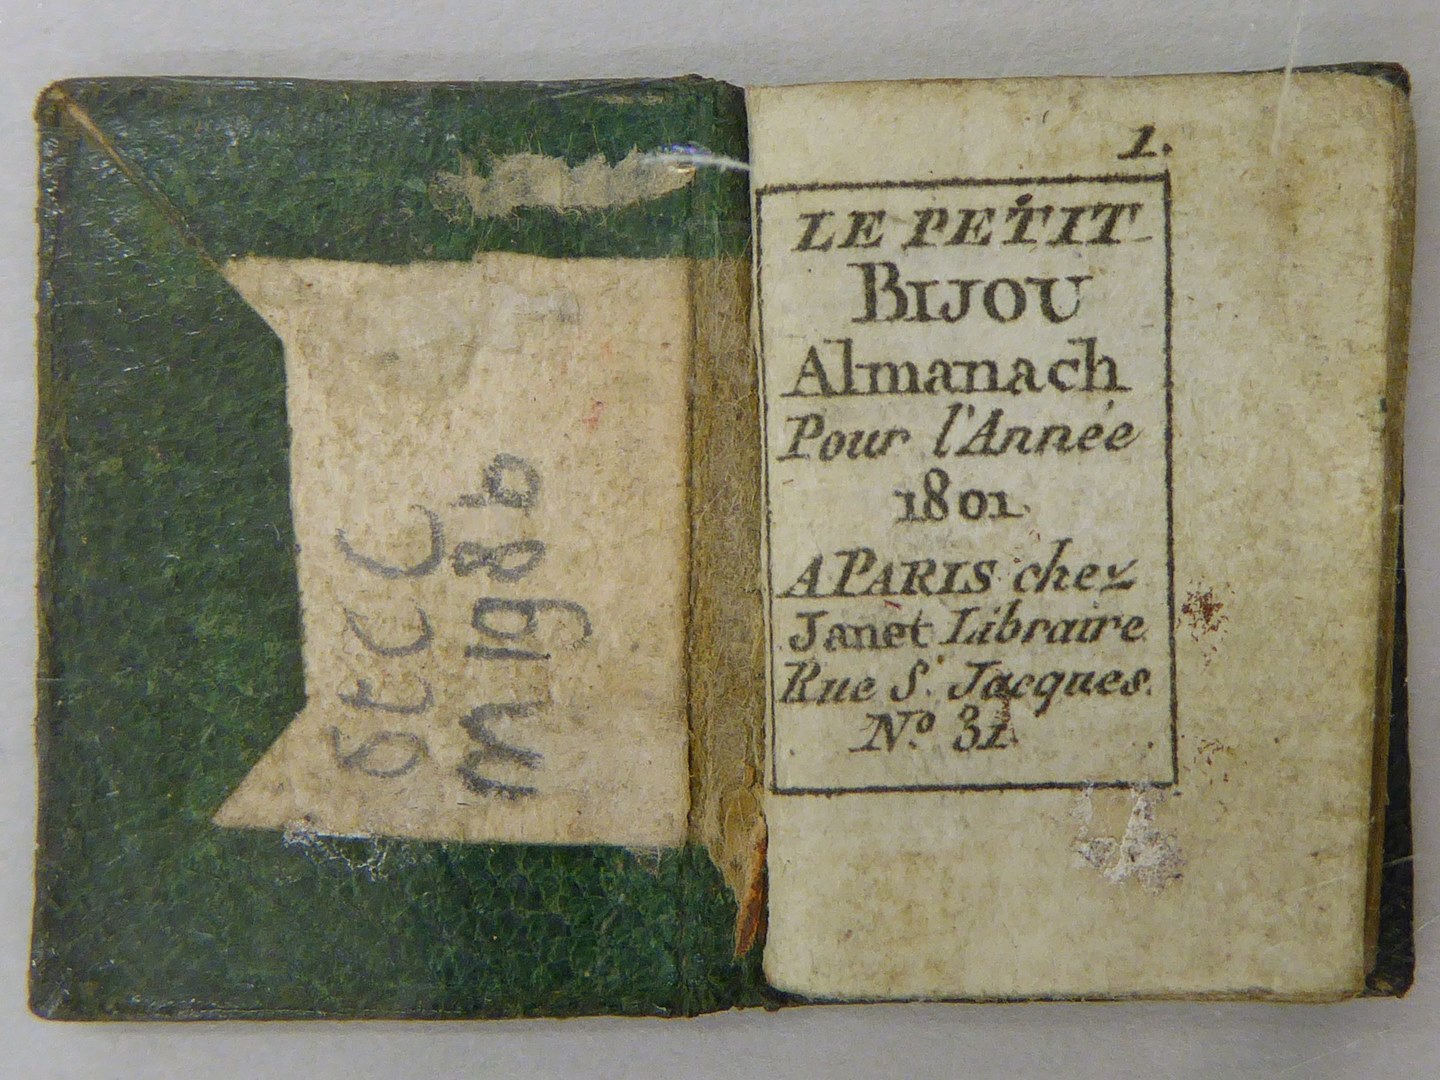 δtCC
m198b
1.
LE PETIT
BIJOU
Almanach
Pour l'Année
1801.
A PARIS chez
Janet Libraire
Rue S. Jacques.
N.º 31.